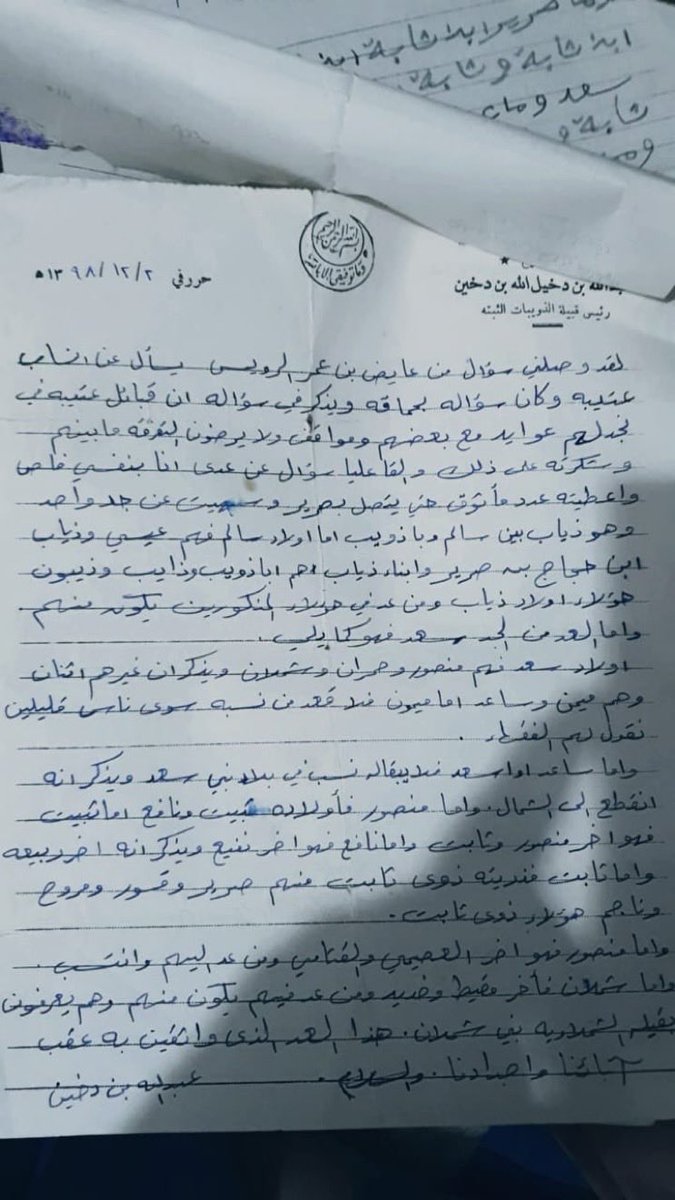 ابة شابة وشابة
سعد
شابة
بسم الله الرحمن الرحيم
وما توفيقي الا بالله
الله بن دخيل الله بن دخين
رئيس قبيلة الذويبات الثبته
حرر في ٩٨/١٢/٢ ١٣ ه
لقد وصلني سؤال من عايض بن عمر الرويس يسأل عن انساب
عتيبه وكان سؤاله بحماقه ويذكر في سؤاله ان قبائل عتيبه في
نجد لهم عوايد مع بعضهم ومواقف ولا يرضون التفرقه ما بينهم
وشكرته على ذلك والقا عليا سؤال عن عدى انا بنفسي خاص
واعطيته عدد مأثوق حتي يتصل بصرير وسبيت عن جد واحد
وهو ذياب بين سالم وباذويب اما اولاد سالم فهم عيسي وذياب
ابن حجاج بن صرير وابناء ذياب هم اباذويب وذايب وذيبون
هؤلاء اولاد ذياب ومن عد في هؤلاء المذكورين يكون منهم
واما العد من الجد سعد فهو كما يلي .
اولاد سعد فهم منصور وحمران وشملان ويذكر ان غيرهم اثنان
وهم ميمن وساعد اما ميمون فلا قعد من نسبه سوى ناس قليلين
نقول لهم الفقطاء .
واما ساعد اوا سعد فلا يبقاله نسب في بلاد بني سعد ويذكر انه
انقطع الى الشمال . واما منصور فأولاده ثبيت ونافع اما ثبيت
فهو اخر منصور وثابت واما نافع فهو اخر نفيع ويذكر انه اخر ربيعه
واما ثابت فنديته ذوى ثابت منهم صرير وقسور ومروح
وناجم هؤلاء ذوى ثابت .
واما منصور فهو اخر العصيمي والقثامي ومن عد اليهم وانتسب .
واما شملان فأخر مقيط وضبه ومن عد فيهم يكون منهم وهم يعرفون
بقبيلة الشملاديه بني شملان . هذا العد الذى واثقين به عقب
آبائنا واجدادنا . والسلام . عبد الله بن دخين